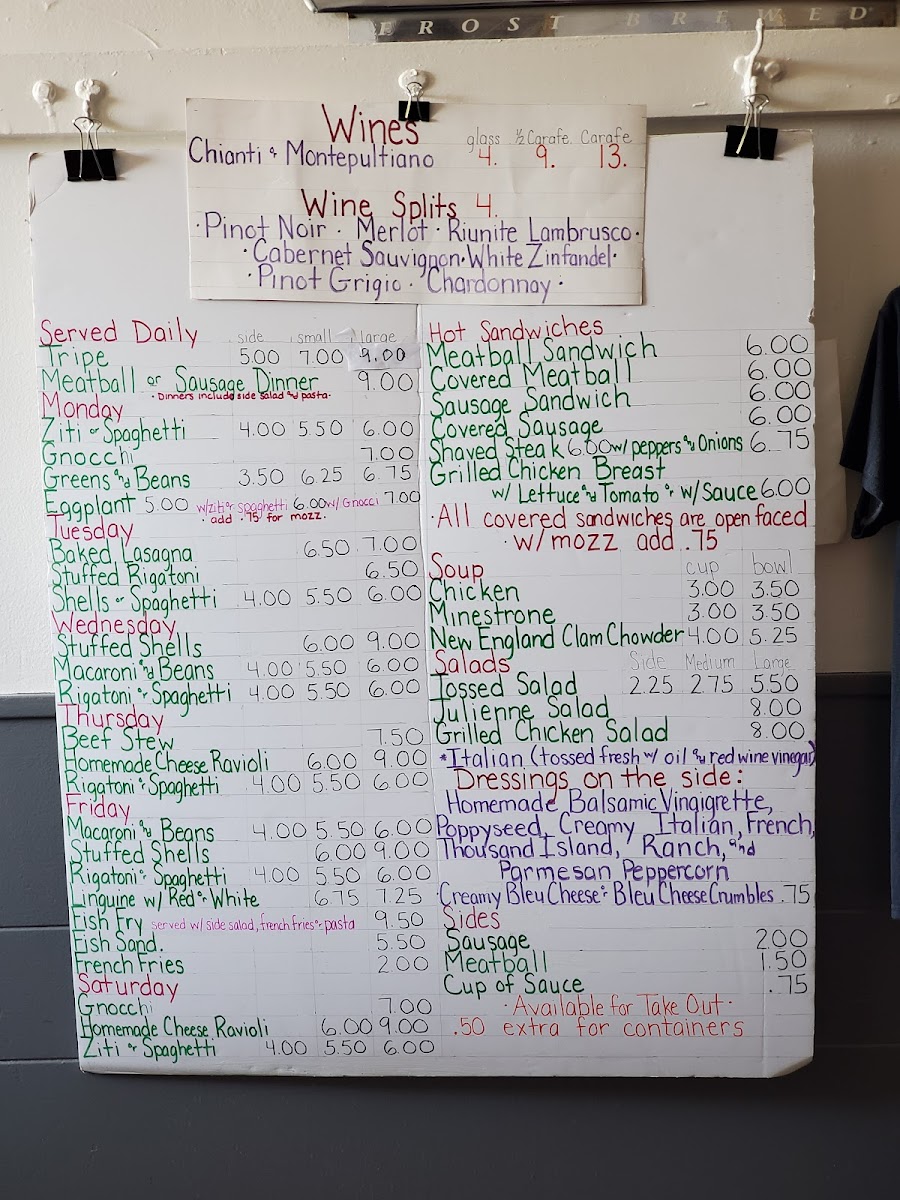 FROST BREWED
Wines
glass ½ Carafe Carafe
Chianti & Montepultiano 4. 9. 13.
Wine Splits 4.
· Pinot Noir · Merlot · Riunite Lambrusco ·
· Cabernet Sauvignon · White Zinfandel ·
· Pinot Grigio · Chardonnay ·
Served Daily side small large
Tripe 5.00 7.00 9.00
Meatball or Sausage Dinner 9.00
· Dinners include side salad and pasta ·
Monday
Ziti or Spaghetti 4.00 5.50 6.00
Gnocchi 7.00
Greens and Beans 3.50 6.25 6.75
Eggplant 5.00 w/ziti or spaghetti 6.00 w/ Gnocci 7.00
· add .75 for mozz.
Tuesday
Baked Lasagna 6.50 7.00
Stuffed Rigatoni 6.50
Shells or Spaghetti 4.00 5.50 6.00
Wednesday
Stuffed Shells 6.00 9.00
Macaroni and Beans 4.00 5.50 6.00
Rigatoni or Spaghetti 4.00 5.50 6.00
Thursday
Beef Stew 7.50
Homemade Cheese Ravioli 6.00 9.00
Rigatoni or Spaghetti 4.00 5.50 6.00
Friday
Macaroni and Beans 4.00 5.50 6.00
Stuffed Shells 6.00 9.00
Rigatoni or Spaghetti 4.00 5.50 6.00
Linguine w/ Red or White 6.75 7.25
Fish Fry served w/ side salad, french fries or pasta 9.50
Fish Sand. 5.50
French Fries 2.00
Saturday
Gnocchi 7.00
Homemade Cheese Ravioli 6.00 9.00
Ziti or Spaghetti 4.00 5.50 6.00
Hot Sandwiches
Meatball Sandwich 6.00
Covered Meatball 6.00
Sausage Sandwich 6.00
Covered Sausage 6.00
Shaved Steak 6.00 w/ peppers and Onions 6.75
Grilled Chicken Breast
w/ Lettuce and Tomato or w/ Sauce 6.00
· All covered sandwiches are open faced
· w/ mozz add .75
Soup cup bowl
Chicken 3.00 3.50
Minestrone 3.00 3.50
New England Clam Chowder 4.00 5.25
Salads Side Medium Large
Tossed Salad 2.25 2.75 5.50
Julienne Salad 8.00
Grilled Chicken Salad 8.00
*Italian (tossed fresh w/ oil and red wine vinegar)
Dressings on the side:
Homemade Balsamic Vinaigrette,
Poppyseed, Creamy Italian, French,
Thousand Island, Ranch, and
Parmesan Peppercorn
Creamy Bleu Cheese or Bleu Cheese Crumbles .75
Sides
Sausage 2.00
Meatball 1.50
Cup of Sauce .75
· Available for Take Out ·
.50 extra for containers